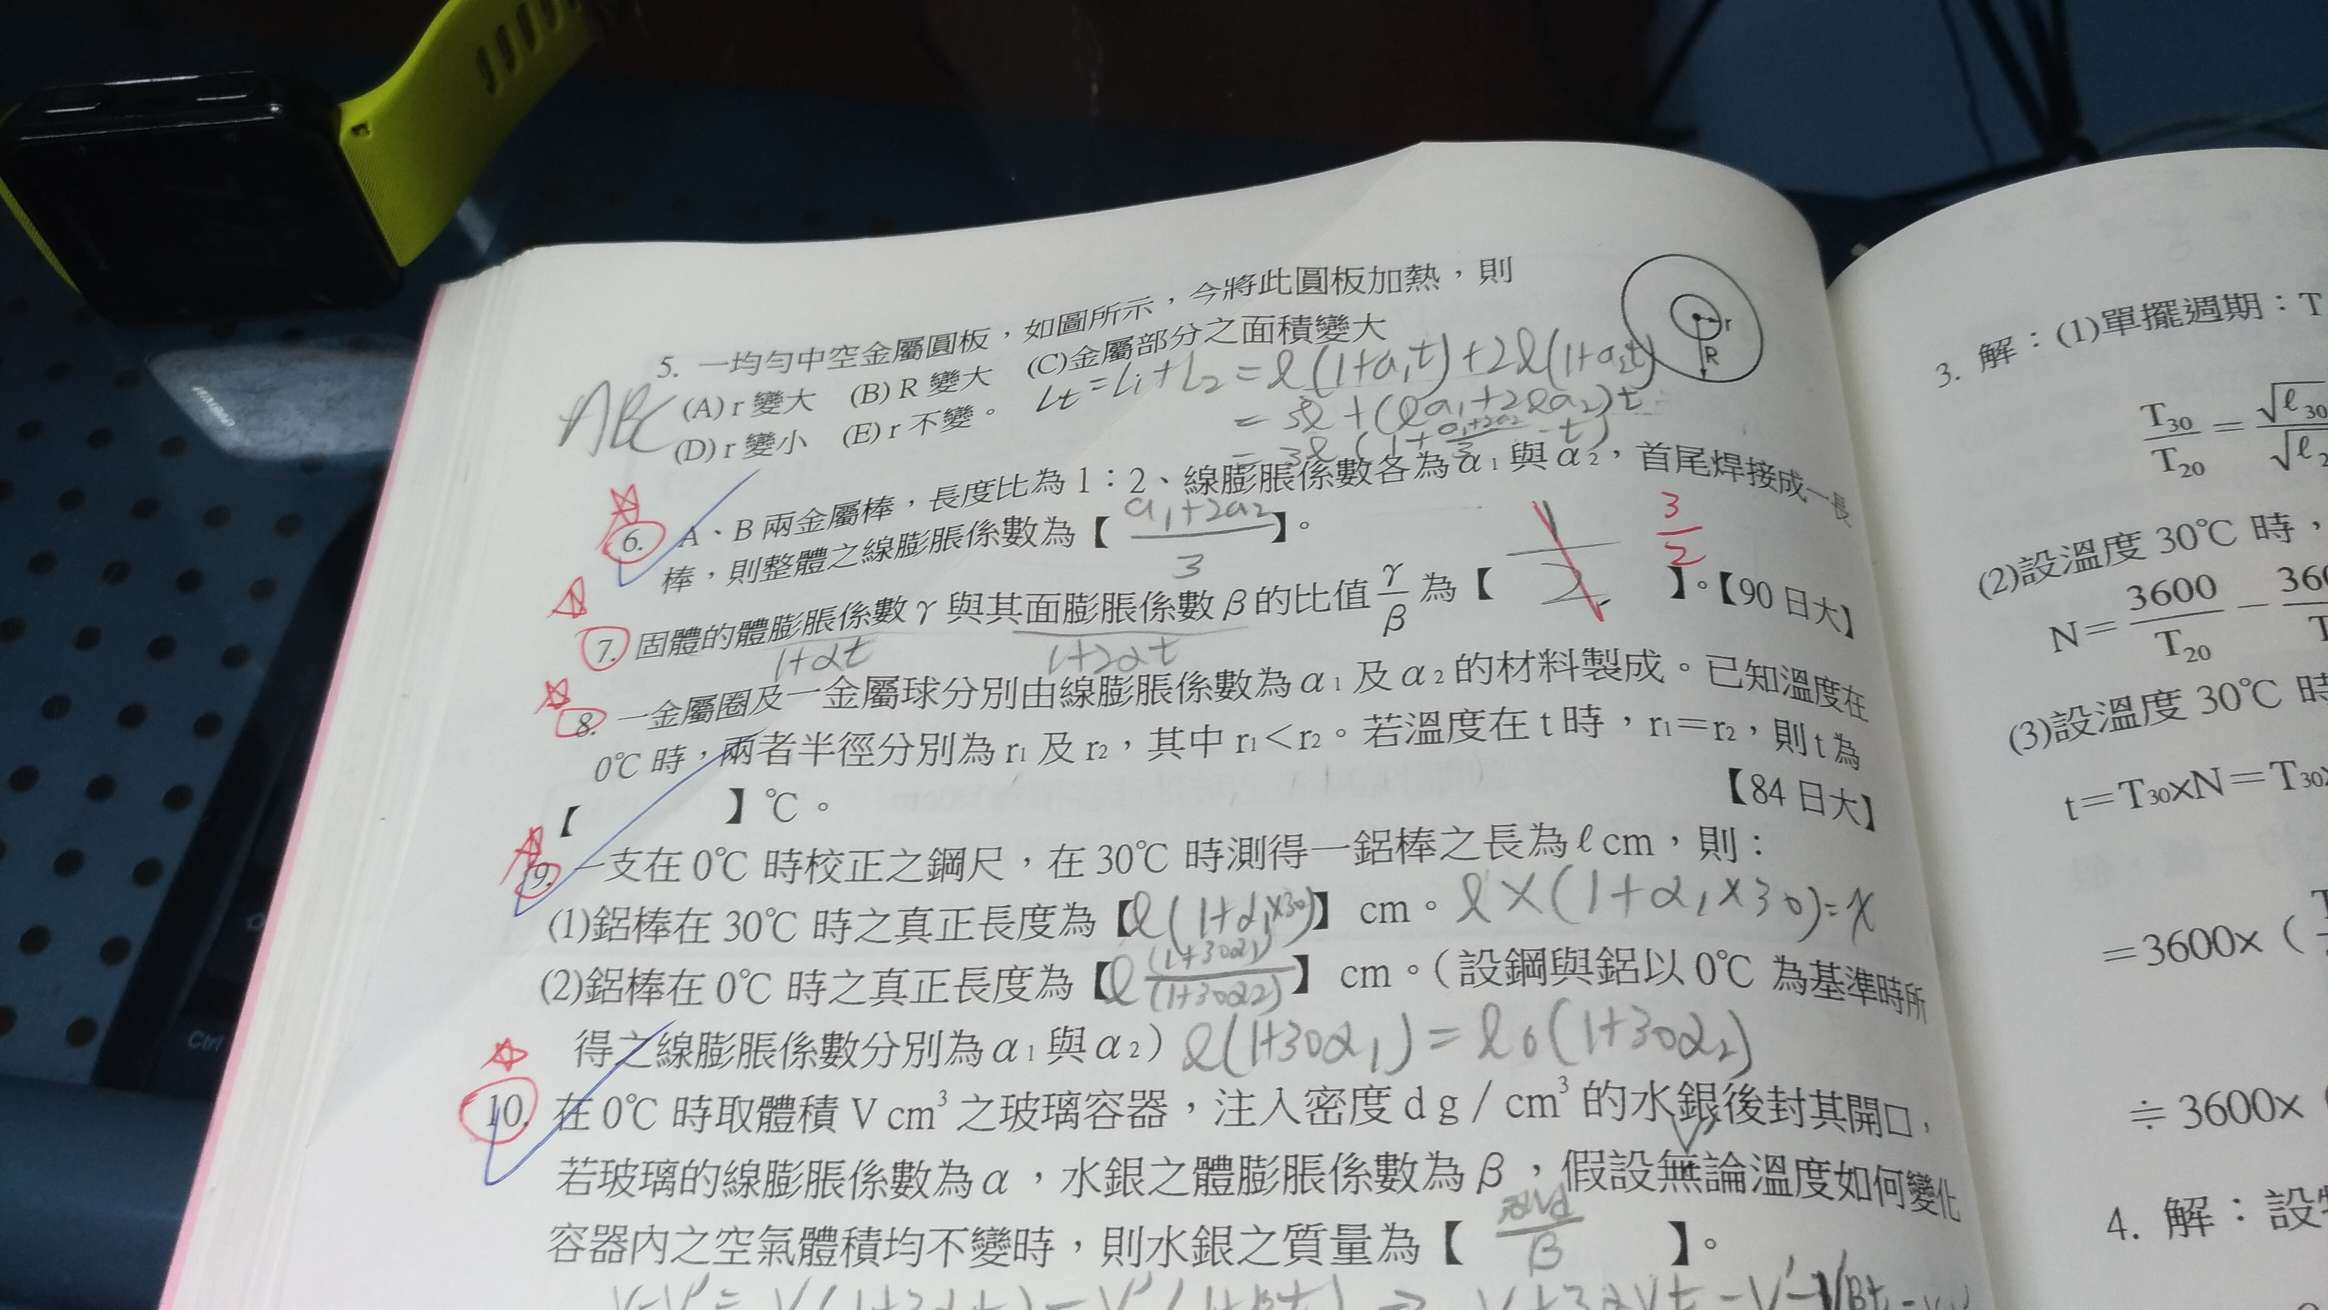 5. 一均勻中空金屬圓板，如圖所示，今將此圓板加熱，則
(A) r 變大 (B) R 變大 (C)金屬部分之面積變大
(D) r 變小 (E) r 不變。
ABC
Lt = L1 + L2 = ℓ(1+a1t)+2ℓ(1+a2t)
= 3ℓ+(ℓa1+2ℓa2)t
r
R
6. A、B 兩金屬棒，長度比為 1：2、線膨脹係數各為α1與α2，首尾焊接成一長
棒，則整體之線膨脹係數為【 a1+2a2 / 3 】。
7. 固體的體膨脹係數γ與其面膨脹係數β的比值 γ/β 為【 】。【90 日大】
3/2
1+αt
1+2αt
8. 一金屬圈及一金屬球分別由線膨脹係數為α1及α2的材料製成。已知溫度在
0℃ 時，兩者半徑分別為 r1 及 r2，其中 r1＜r2。若溫度在 t 時，r1＝r2，則 t 為
【 】℃。 【84 日大】
9. 一支在 0℃ 時校正之鋼尺，在 30℃ 時測得一鋁棒之長為 ℓ cm，則：
(1)鋁棒在 30℃ 時之真正長度為【ℓ(1+α1×30)】 cm。 ℓ×(1+α1×30)=x
(2)鋁棒在 0℃ 時之真正長度為【ℓ (1+30α1)/(1+30α2)】 cm。（設鋼與鋁以 0℃ 為基準時所
得之線膨脹係數分別為α1與α2） ℓ(1+30α1)=ℓ0(1+30α2)
10. 在 0℃ 時取體積 V cm³ 之玻璃容器，注入密度 d g／cm³ 的水銀後封其開口，
若玻璃的線膨脹係數為α，水銀之體膨脹係數為β，假設無論溫度如何變化
容器內之空氣體積均不變時，則水銀之質量為【 3αVd / β 】。
3. 解：(1)單擺週期：T
T30/T20 = √ℓ30/√ℓ
(2)設溫度 30℃ 時，
N＝3600/T20－
(3)設溫度 30℃ 時
t＝T30×N＝T30×
＝3600×（
≑3600×
4. 解：設
Ctrl